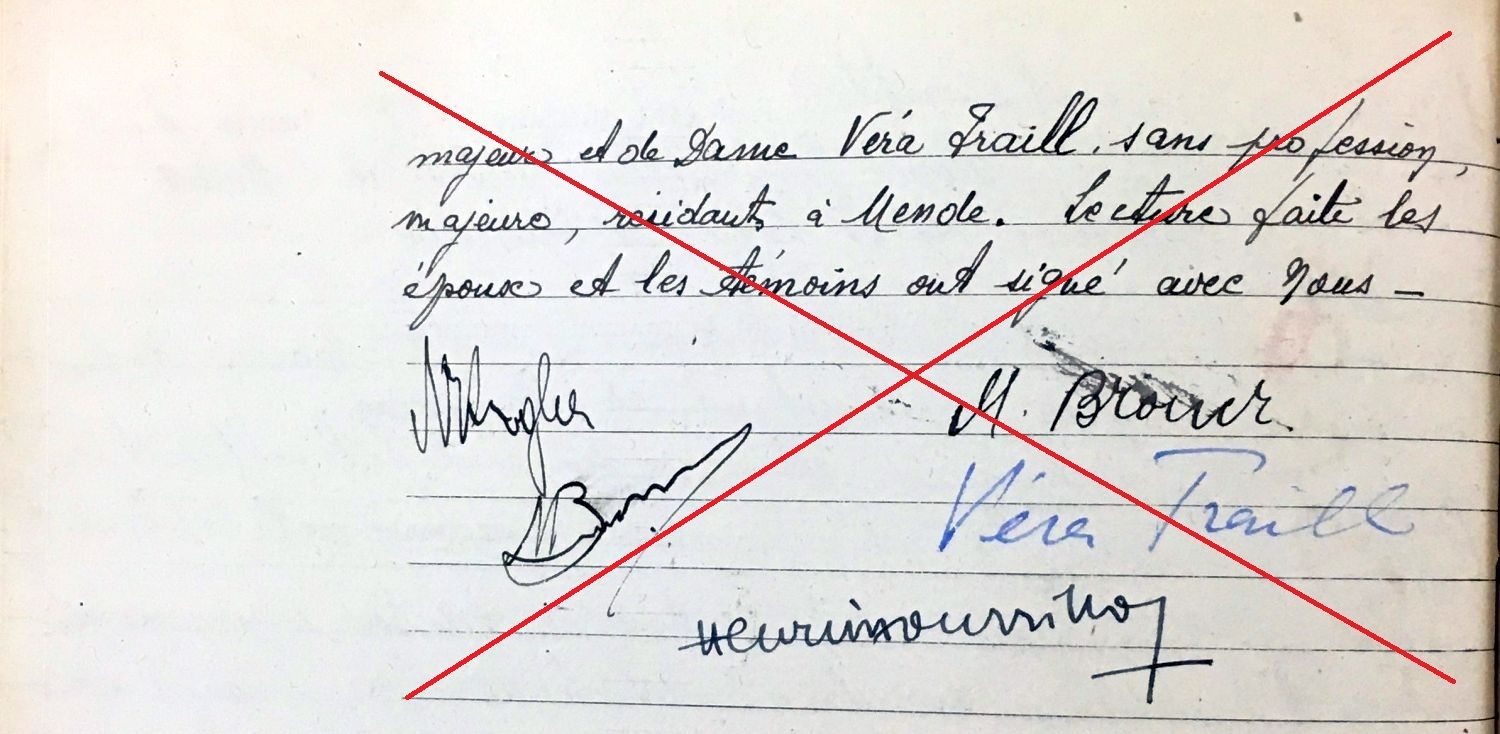 majeurs et de Dame Véra Traill, sans profession,
majeure, résidants à Mende. Lecture faite les
époux et les témoins ont signé avec Nous —
M. Brouer
Véra Traill